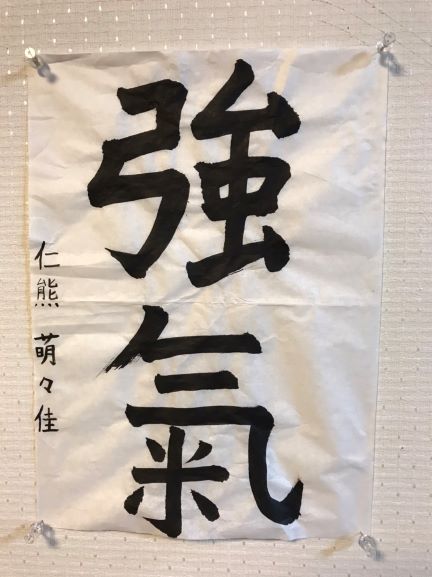 強氣
仁熊 萌々佳